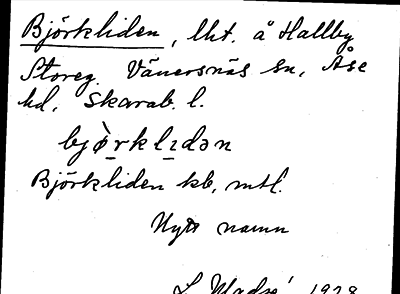 Björkliden, lht. å Hallby
Storeg. Vänersnäs sn, Åse
hd, Skarab. l.
bjø̀rklɪdən
Björkliden kb, mtl.
Nytt namn
1928